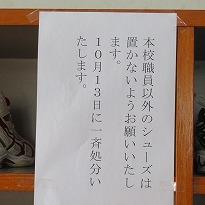 本校職員以外のシューズは
置かないようお願いいたし
ます。
１０月１３日に一斉処分い
たします。